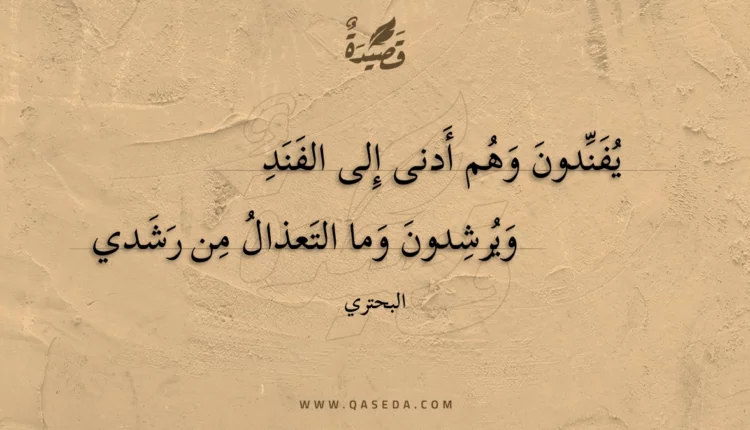 قَصِيْدَةٌ
يُفَنِّدونَ وَهُم أَدنى إِلى الفَنَدِ
وَيُرشِدونَ وَما التَعذالُ مِن رَشَدي
البحتري
WWW.QASEDA.COM